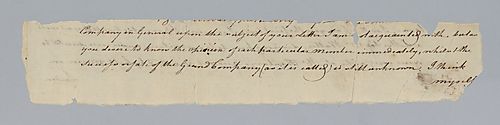 Company in General upon the subject of your Letter I am not acquainted with, but as
you desire to know the opinion of each particular Member immediately, whilst the
success or fate of the Grand Company (as it is called) is still unknown, I think
myself